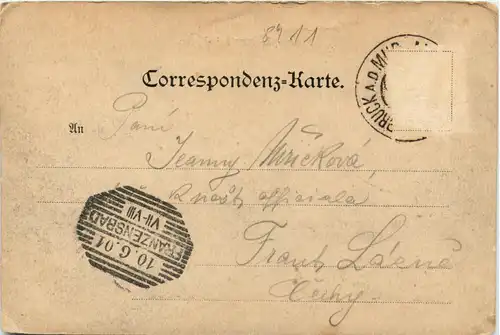 8911
BRUCK A.D. MUR
Correspondenz-Karte.
An Paní
Jeanny
officiala
10.6.01
FRANZENSBAD
VII-VIII
Frant. Lázně
Čechy.